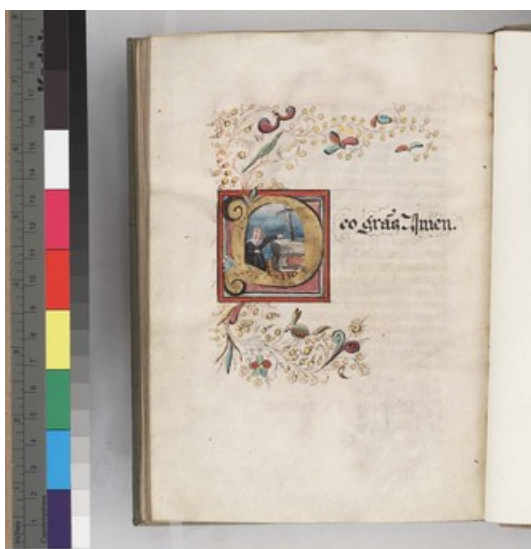 Deo grãs Amen.